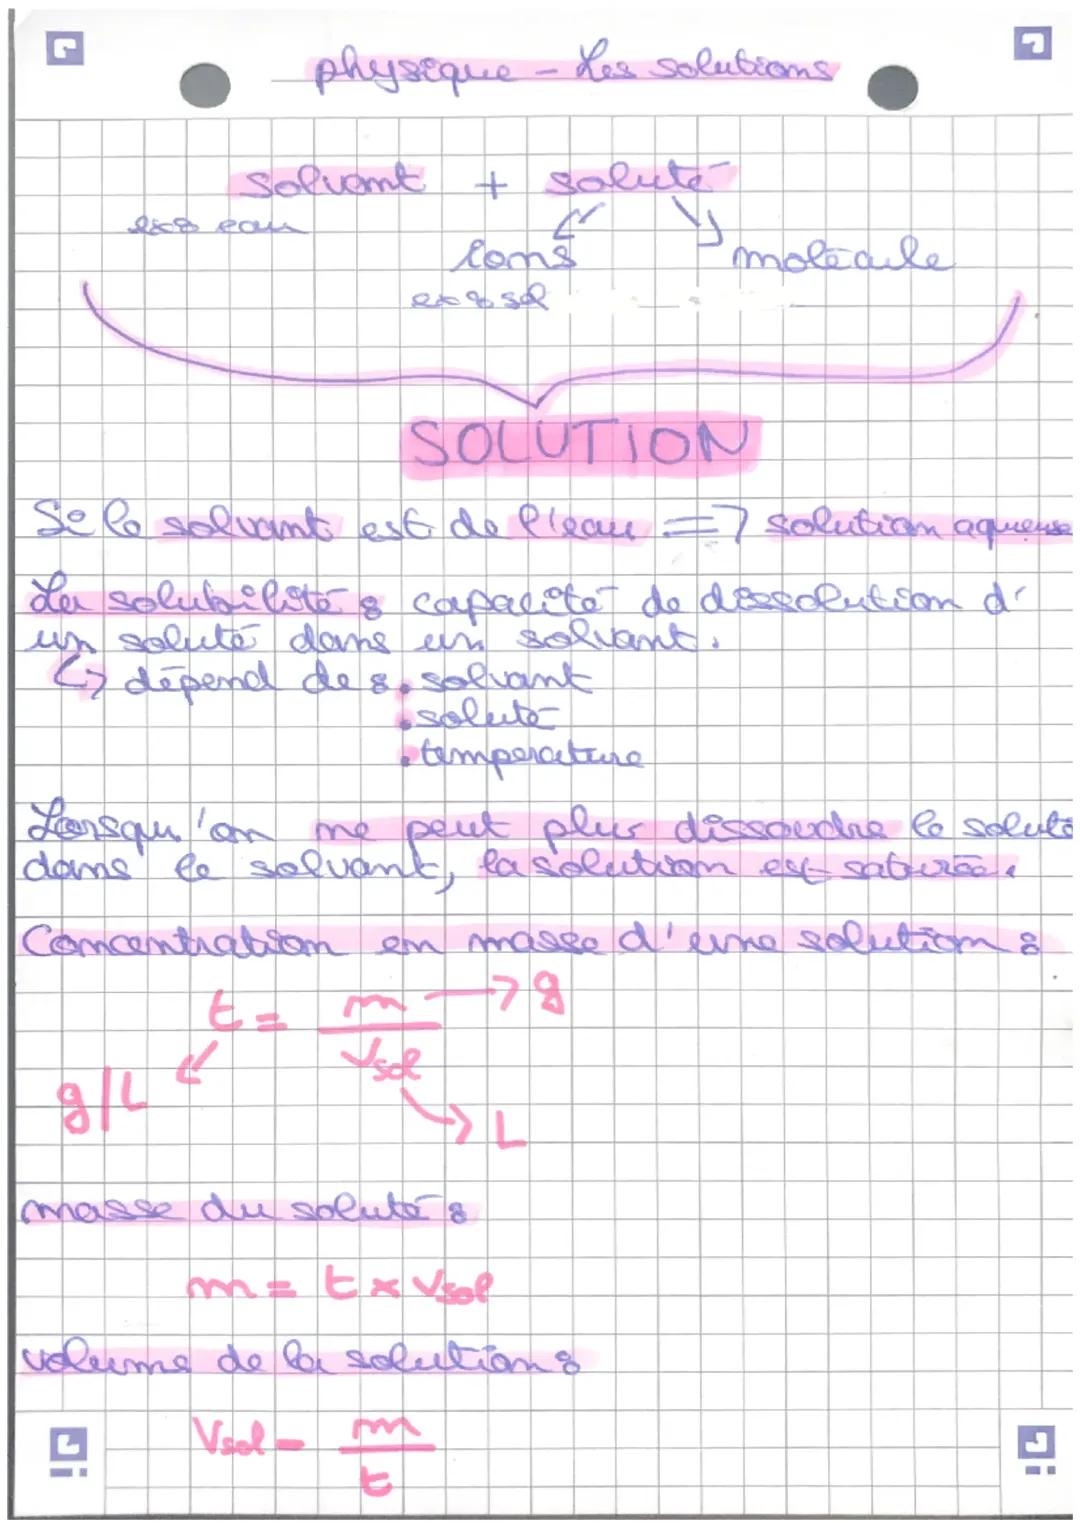 physique - Les solutions
solvant + soluté
ex: eau
ions molécule
ex: sel
SOLUTION
Si le solvant est de l'eau => solution aqueuse
La solubilité: capacité de dissolution d'
un soluté dans un solvant.
↳ dépend de: • solvant
• soluté
• temperature
Lorsqu'on ne peut plus dissoudre le soluté
dans le solvant, la solution est saturée.
Concentration en masse d'une solution:
t = m / Vsol
→ g
g/L
→ L
masse du soluté:
m = t × Vsol
volume de la solution:
Vsol = m / t